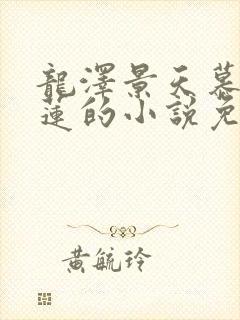 龍澤景天慕
蓮的小說免
黃毓玲